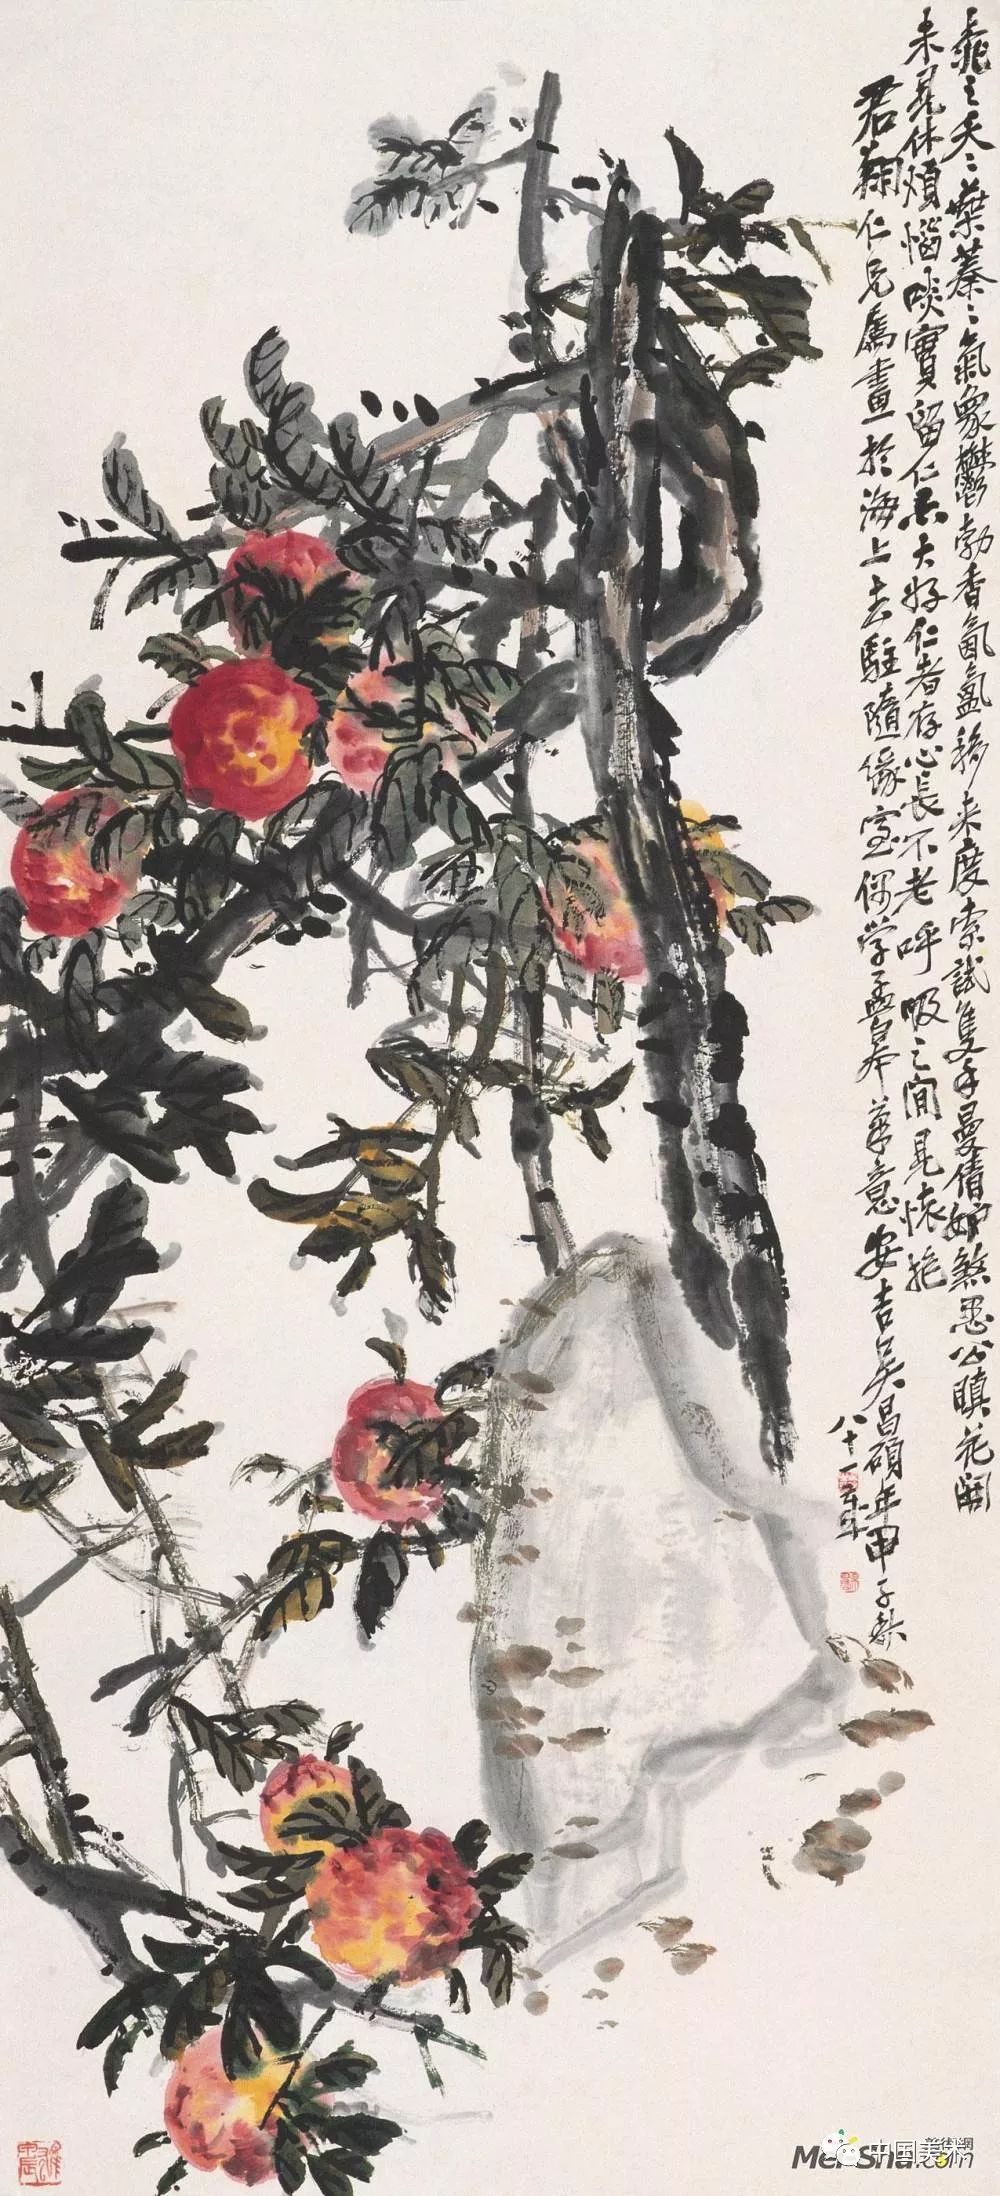 桃之夭々葉蓁々氣象鬱勃香氤氳移来度索試隻手曼倩妒煞愚公瞋花開
未見休煩惱啖實留仁亦大好仁者存心長不老呼吸之間見懷抱
君翔仁兄屬畫於海上去駐隨緣室偶學孟皋筆意安吉吴昌碩年
八十一
甲子秋
中国美术
MeiSha.com